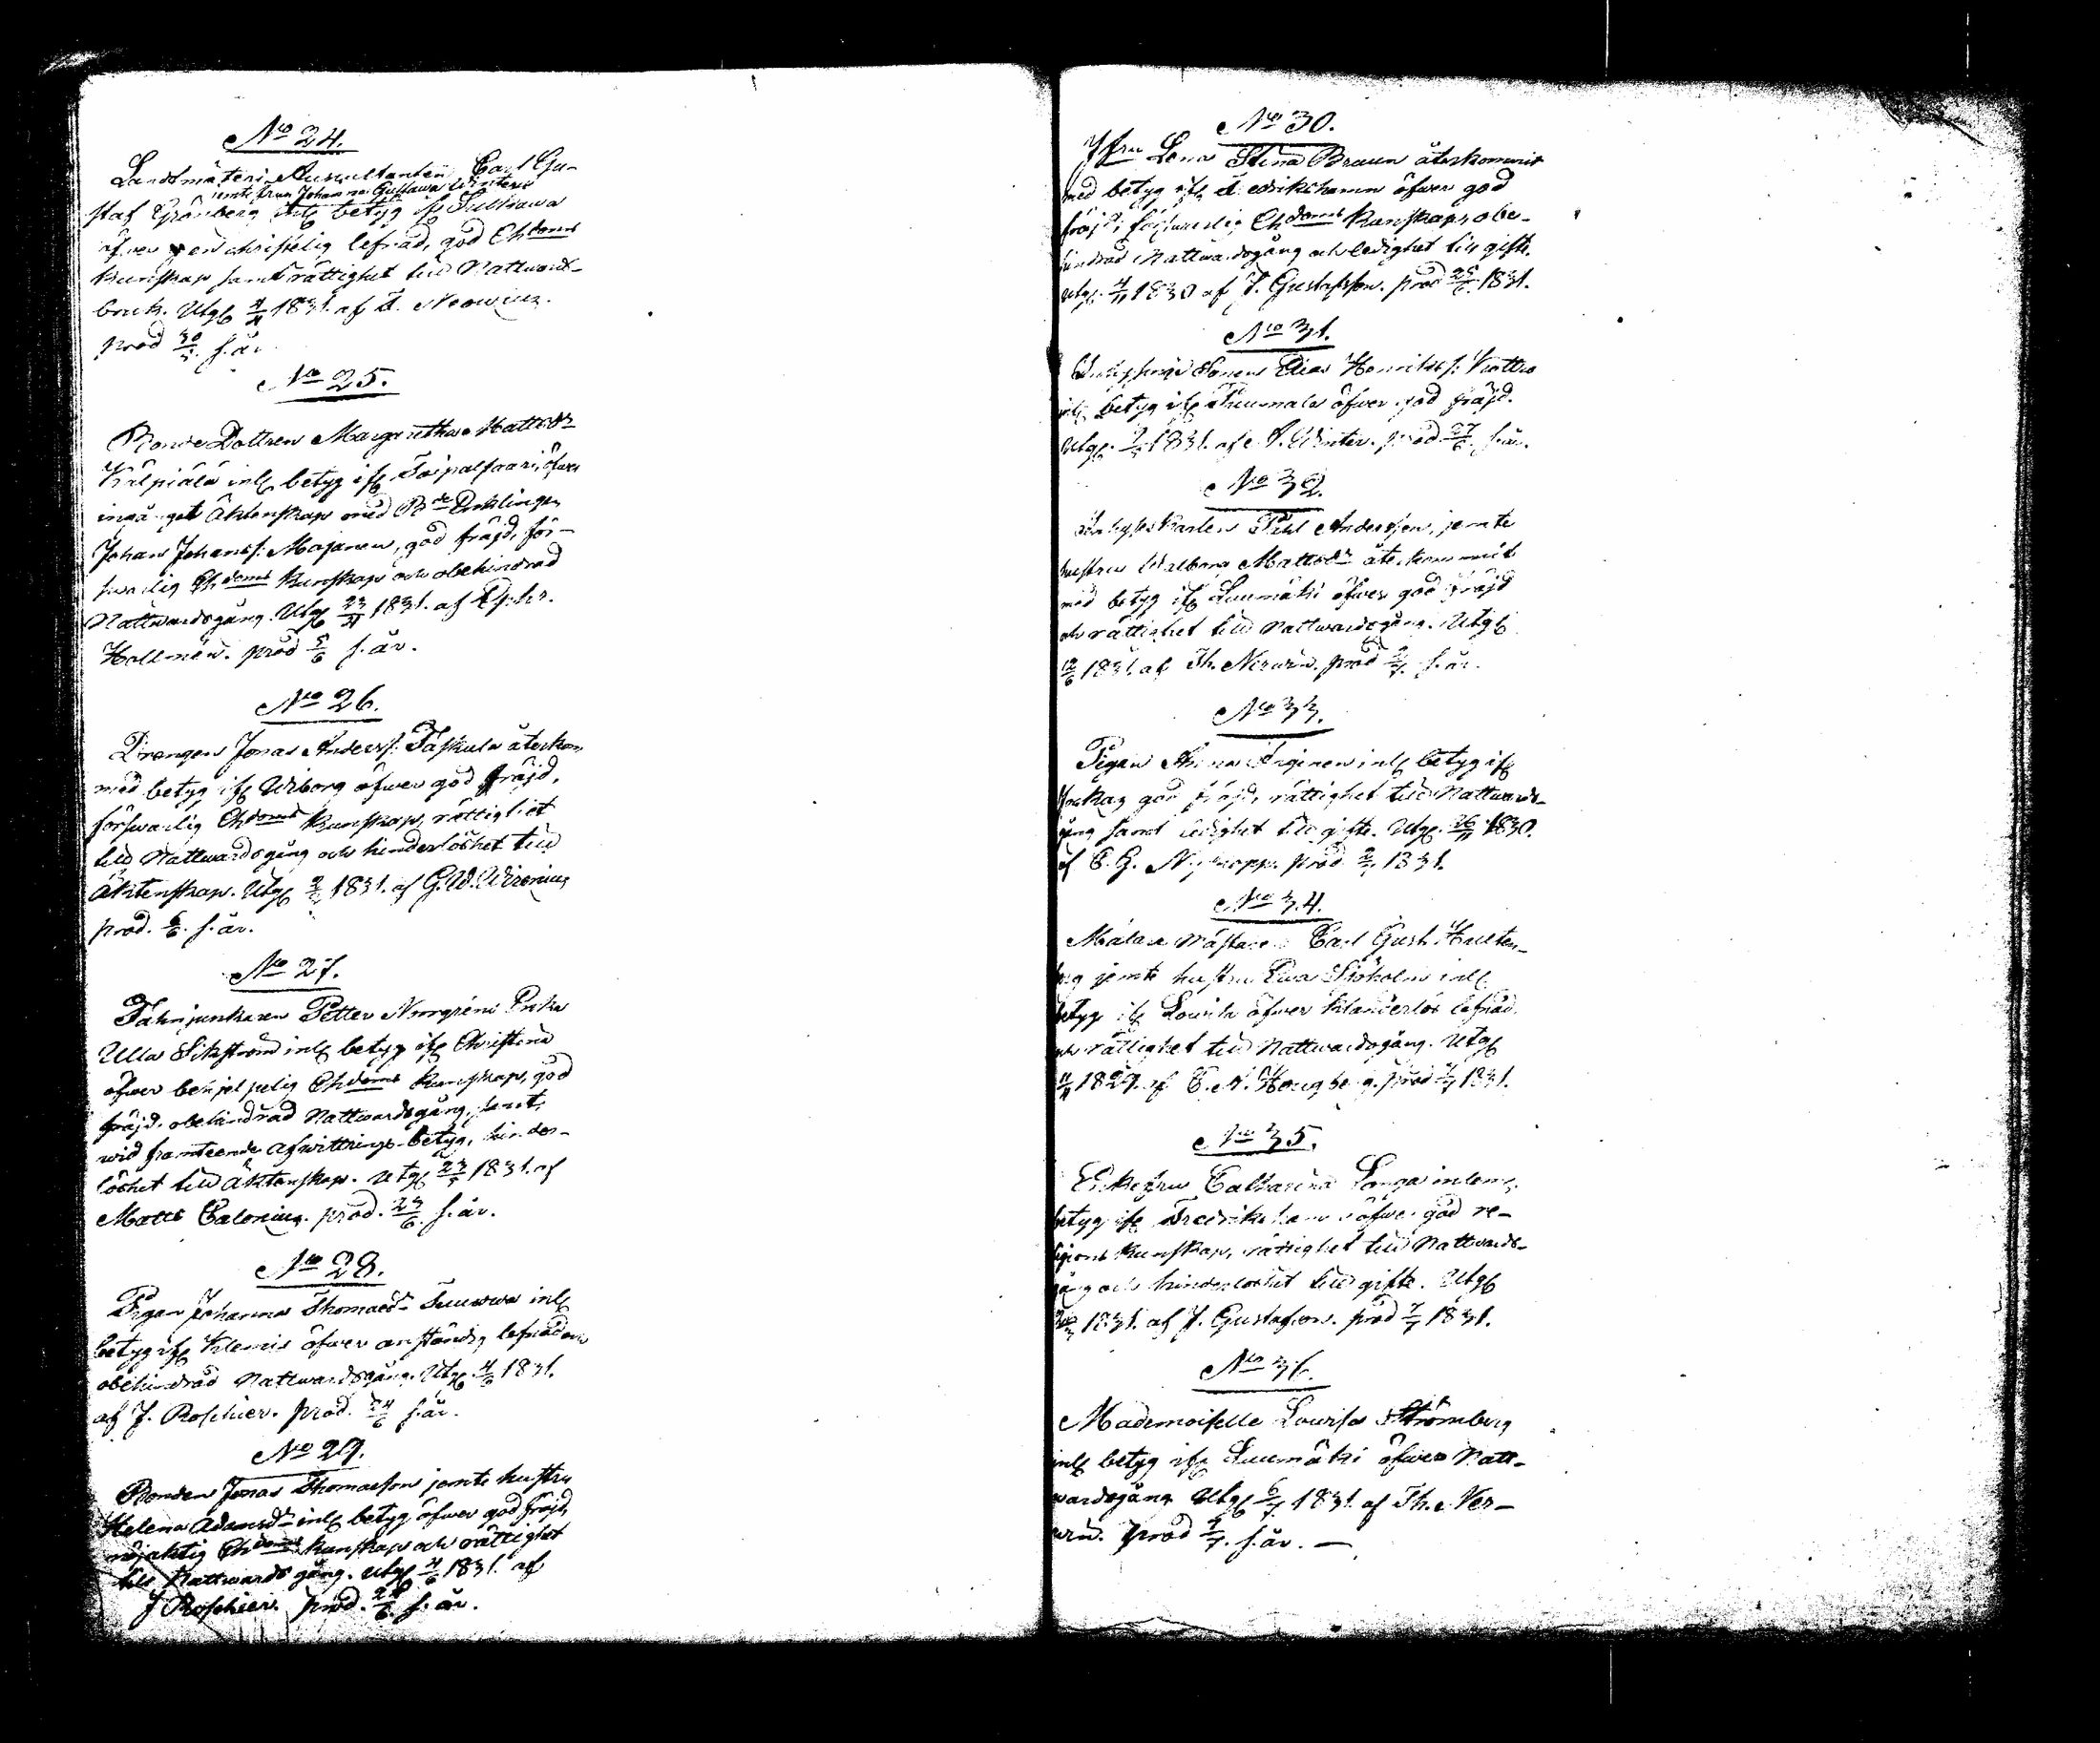 No 24.
Landtmäteri Auscultanten Carl Gu-
jemte frun Johanna Gustawa Winter
staf Grönberg inlc betyg ifr Sulkawa
öfwer en christelig lefnad, god Chdoms
kunskap samt rättighet till Nattwards-
bruk. Utgc 1831. af
prod 30/5. s. år.
No 25.
Bonde Dottren Margaretha Mattsdr
Kälpiälä inlc betyg ifr Taipalsaari, öfwer
ingånget Äktenskap med Bde Ynklingen
Johan Johanss: Majanen, god fräjd, för-
swarlig Chdoms kunskap och obehindrad
Nattwardsgång. Utgc 1831. af
Hollmén. prod 5/6 s. år.
No 26.
Drengen Jonas Anderss: Taskula återkom
med betyg ifr Wiborg öfwer god fräjd,
förswarlig Chdoms kunskap, rättighet
till Nattwardsgång och hinderlöshet till
Äktenskap. Utgc 1831. af G. W. Wirenius
prod. 6/6. s. år.
No 27.
Fahnjunkaren Petter Norrgréns Enka
Ulla Sikström inlc betyg ifr Christina
öfwer behjelpelig Chdoms kunskap, god
fräjd, obehindrad Nattwardsgång, samt,
wid framteende afwittrings-betyg, hinder-
löshet till Äktenskap. Utgc 1831. af
Matts Calonius. prod. 23/6. s. år.
No 28.
Pigan Johanna Thomaedr Suuwa inlc
betyg ifr Klemis öfwer anständig lefnad och
obehindrad Nattwardsgång. Utgc. 4/6 1831.
af J. Roschier. prod. 24/6 s. år.
No 29.
Bonden Jonas Thomasson jemte hustru
Helena Adamsdr inlc betyg öfwer god fräjd,
nöjaktig Chdoms kunskap och rättighet
till Nattwards gång. Utgc 4/6 1831. af
J Roschier. prod. 24/6. s. år.
No 30.
Jfru Lena Stina Braun återkommit
med betyg ifr Fredrikshamn öfwer god
fräjd, förswarlig Chdoms kunskap, obe-
hindrad Nattwardsgång och ledighet till gifte.
Utgc. 4/11 1830 af J. Gustafsson. prod 25/6. 1831.
No 31.
Sonen Elias Henrikss:
inlc betyg ifr Thuumala öfwer god fräjd.
Utgc. 1831. af A. Winter. prod. 27/6. s. år.
No 32.
Pehl Andersson, jemte
hustru Walborg Mattsdr återkommit
med betyg ifr Luumäki öfwer god fräjd
och rättighet till Nattwardsgång. Utgc
12/6 1831. af Th. Nerwin. prod 2/7. s. år.
No 33.
Pigan Anna inlc betyg ifr
god fräjd, rättighet till Nattwards-
gång samt ledighet till gifte. Utgc. 26/11 1830.
af C. G. Nykopp. prod 2/7 1831.
No 34.
Målare Mästaren Carl Gust. Hulten-
berg jemte hustru Ewa Sjöholm inlc
betyg ifr Lowisa öfwer klanderlös lefnad
och rättighet till Nattwardsgång. Utgc
1829. af C. A. Hougberg. prod 1831.
No 35.
Enkefru Catharina Langa inlemn.
betyg ifr Fredrikshamn öfwer god re-
ligions kunskap, rättighet till Nattwards-
gång och hinderlöshet till gifte. Utgc
1831. af J. Gustafson. prod 7/7 1831.
No 36.
Mademoiselle Lowisa Strömberg
inlc betyg ifr Luumäki öfwer Natt-
wardsgång Utgc 6/7. 1831. af Th. Ner-
win. prod 9/7. s. år. —